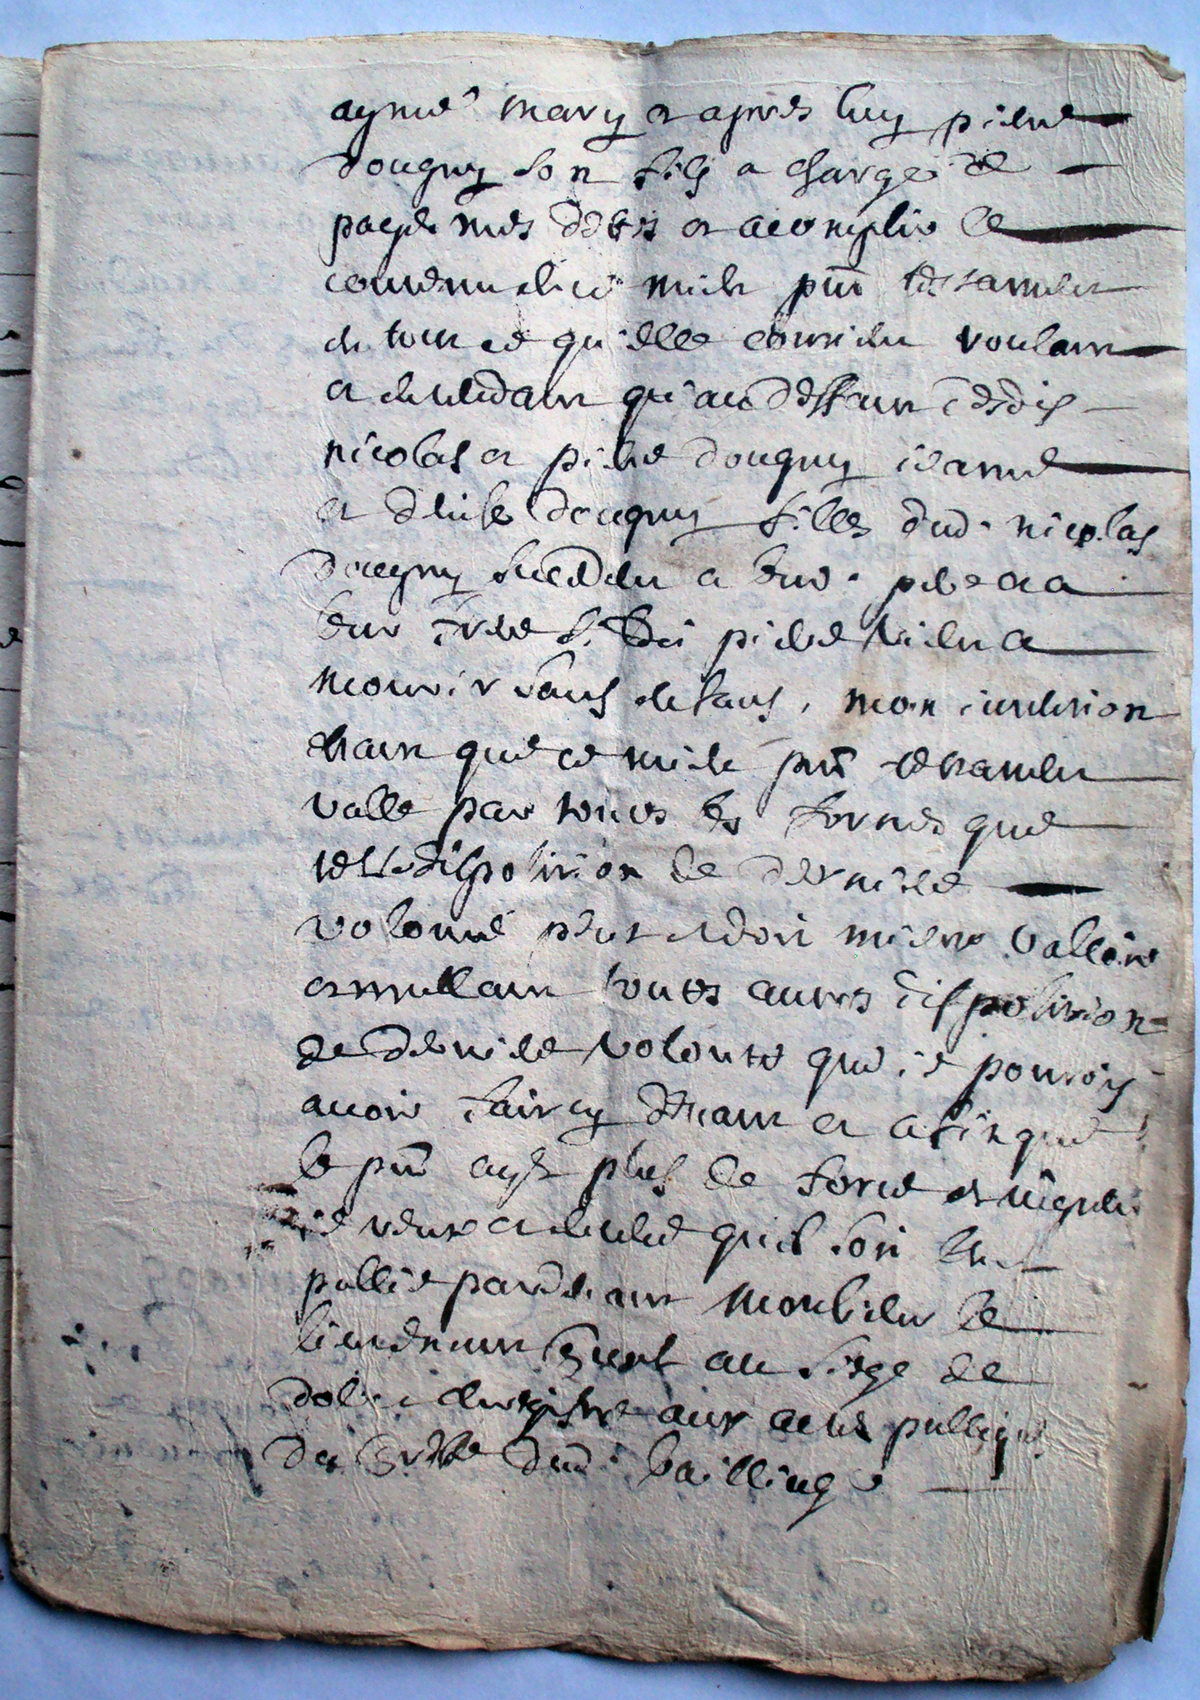 aymé mary et apres luy pierre
dougny son fils a charge de
payer mes debtes et acomplir le
contenu en ce mien pnt testament
de tout ce qu'elle contient voulant
et entendant qu'au deffaut desdis
nicolas et pierre dougny jeanne
et denise dougny filles dud. nicolas
dougny succedent a leurd. pere et a
leur frere si led. pierre vient a
mourir sans enfans, mon intention
estant que ce mien pnt testament
valle par toutes les formes que
telle disposition de derniere
volonté peut et doit mieux valloir
annullant toutes autres disposition
de derniere volonté que ie pourrois
avoir fait cy devant et afin que
le pnt ayt plus de force et vigueur
ie veux et entend qu'il soit leu et
pullié pardevant monsieur le
lieutenant gnral au siege de
dole enregistré aux actes pulliques
du greffe dud. bailliage